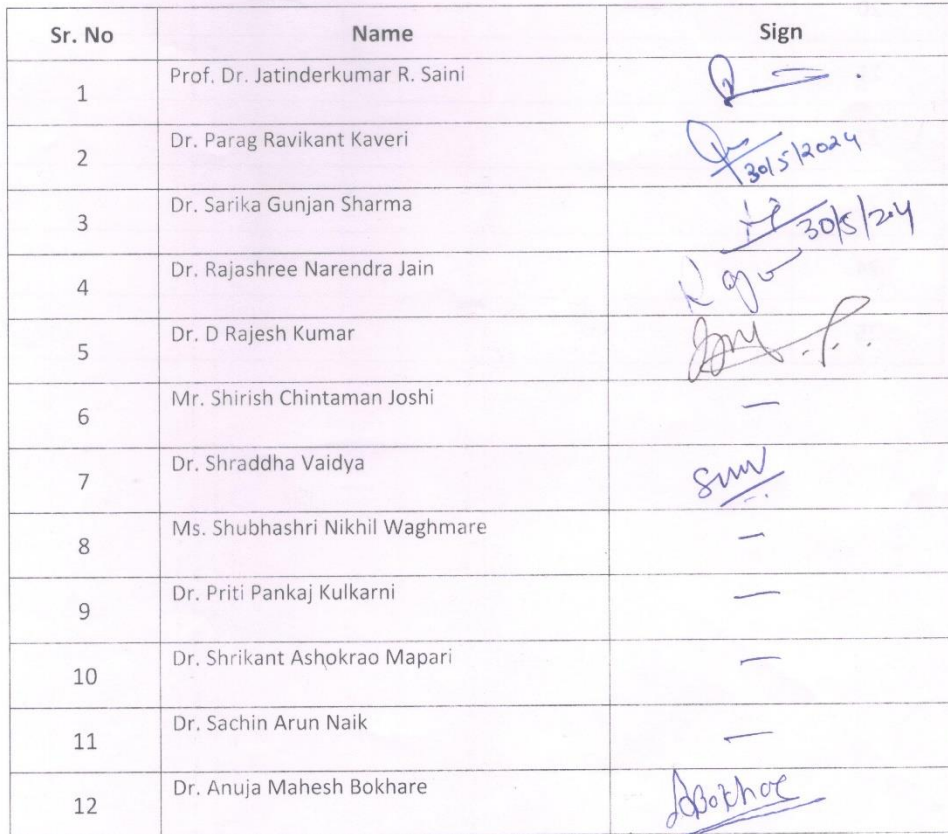 Sr. No Name Sign
1 Prof. Dr. Jatinderkumar R. Saini
2 Dr. Parag Ravikant Kaveri 30/5/2024
3 Dr. Sarika Gunjan Sharma 30/5/24
4 Dr. Rajashree Narendra Jain
5 Dr. D Rajesh Kumar
6 Mr. Shirish Chintaman Joshi —
7 Dr. Shraddha Vaidya
8 Ms. Shubhashri Nikhil Waghmare —
9 Dr. Priti Pankaj Kulkarni —
10 Dr. Shrikant Ashokrao Mapari —
11 Dr. Sachin Arun Naik —
12 Dr. Anuja Mahesh Bokhare ABokhare